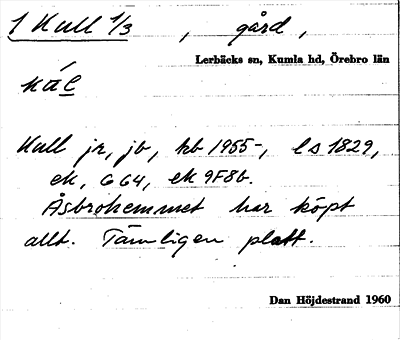 1 Kull 1/3 , gård ,
Lerbäcks sn, Kumla hd, Örebro län
Kull jr, jb, hb 1955-, ls 1829,
ek, G 64, ek 9F8b.
Åsbrohemmet har köpt
allt. Tämligen platt.
Dan Höjdestrand 1960